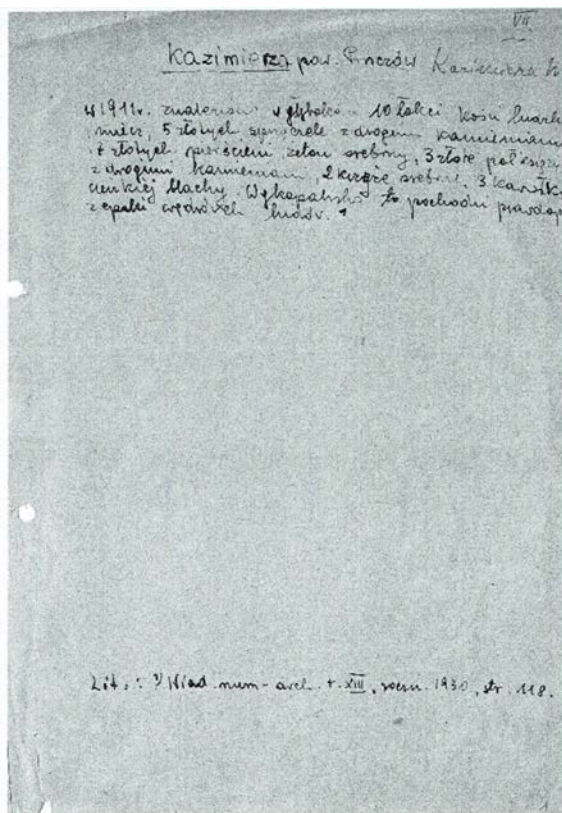 VII.
Kazimierza pow. Pinczów Kazimiera W
W 1911 r. znaleziono w głębokości 10 łokci kości
miecz, 5 złotych z drogimi kamieniami
złotych pierścieni, żeton srebrny, 3 złote
z drogimi kamieniami, 2 srebrne, 3 kawałki
cienkiej blachy. Wykopalisko to pochodzi prawdop
z epoki wędrówek ludów. 1
Lit.: 1) Wiad. num-arch. t. XIII, roczn. 1930, str. 118.